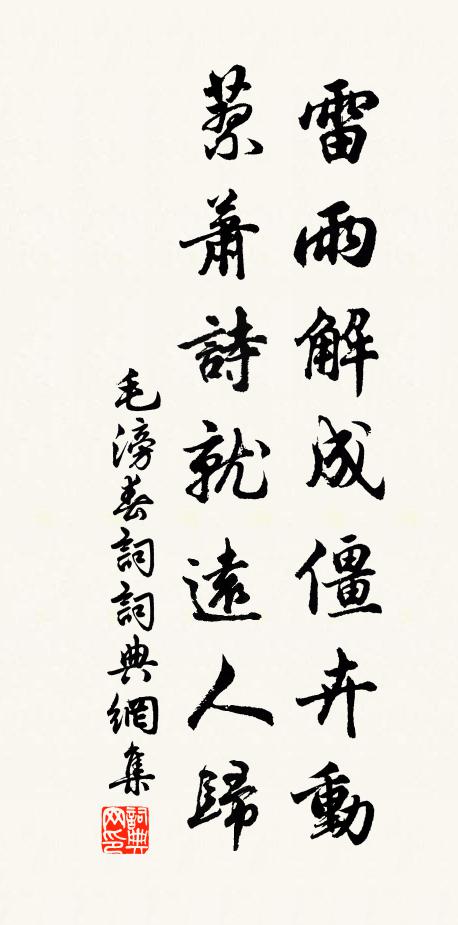 雷雨解成僵卉動
蓼蕭詩就遠人歸
毛滂春詞詞典網集
詞典网印